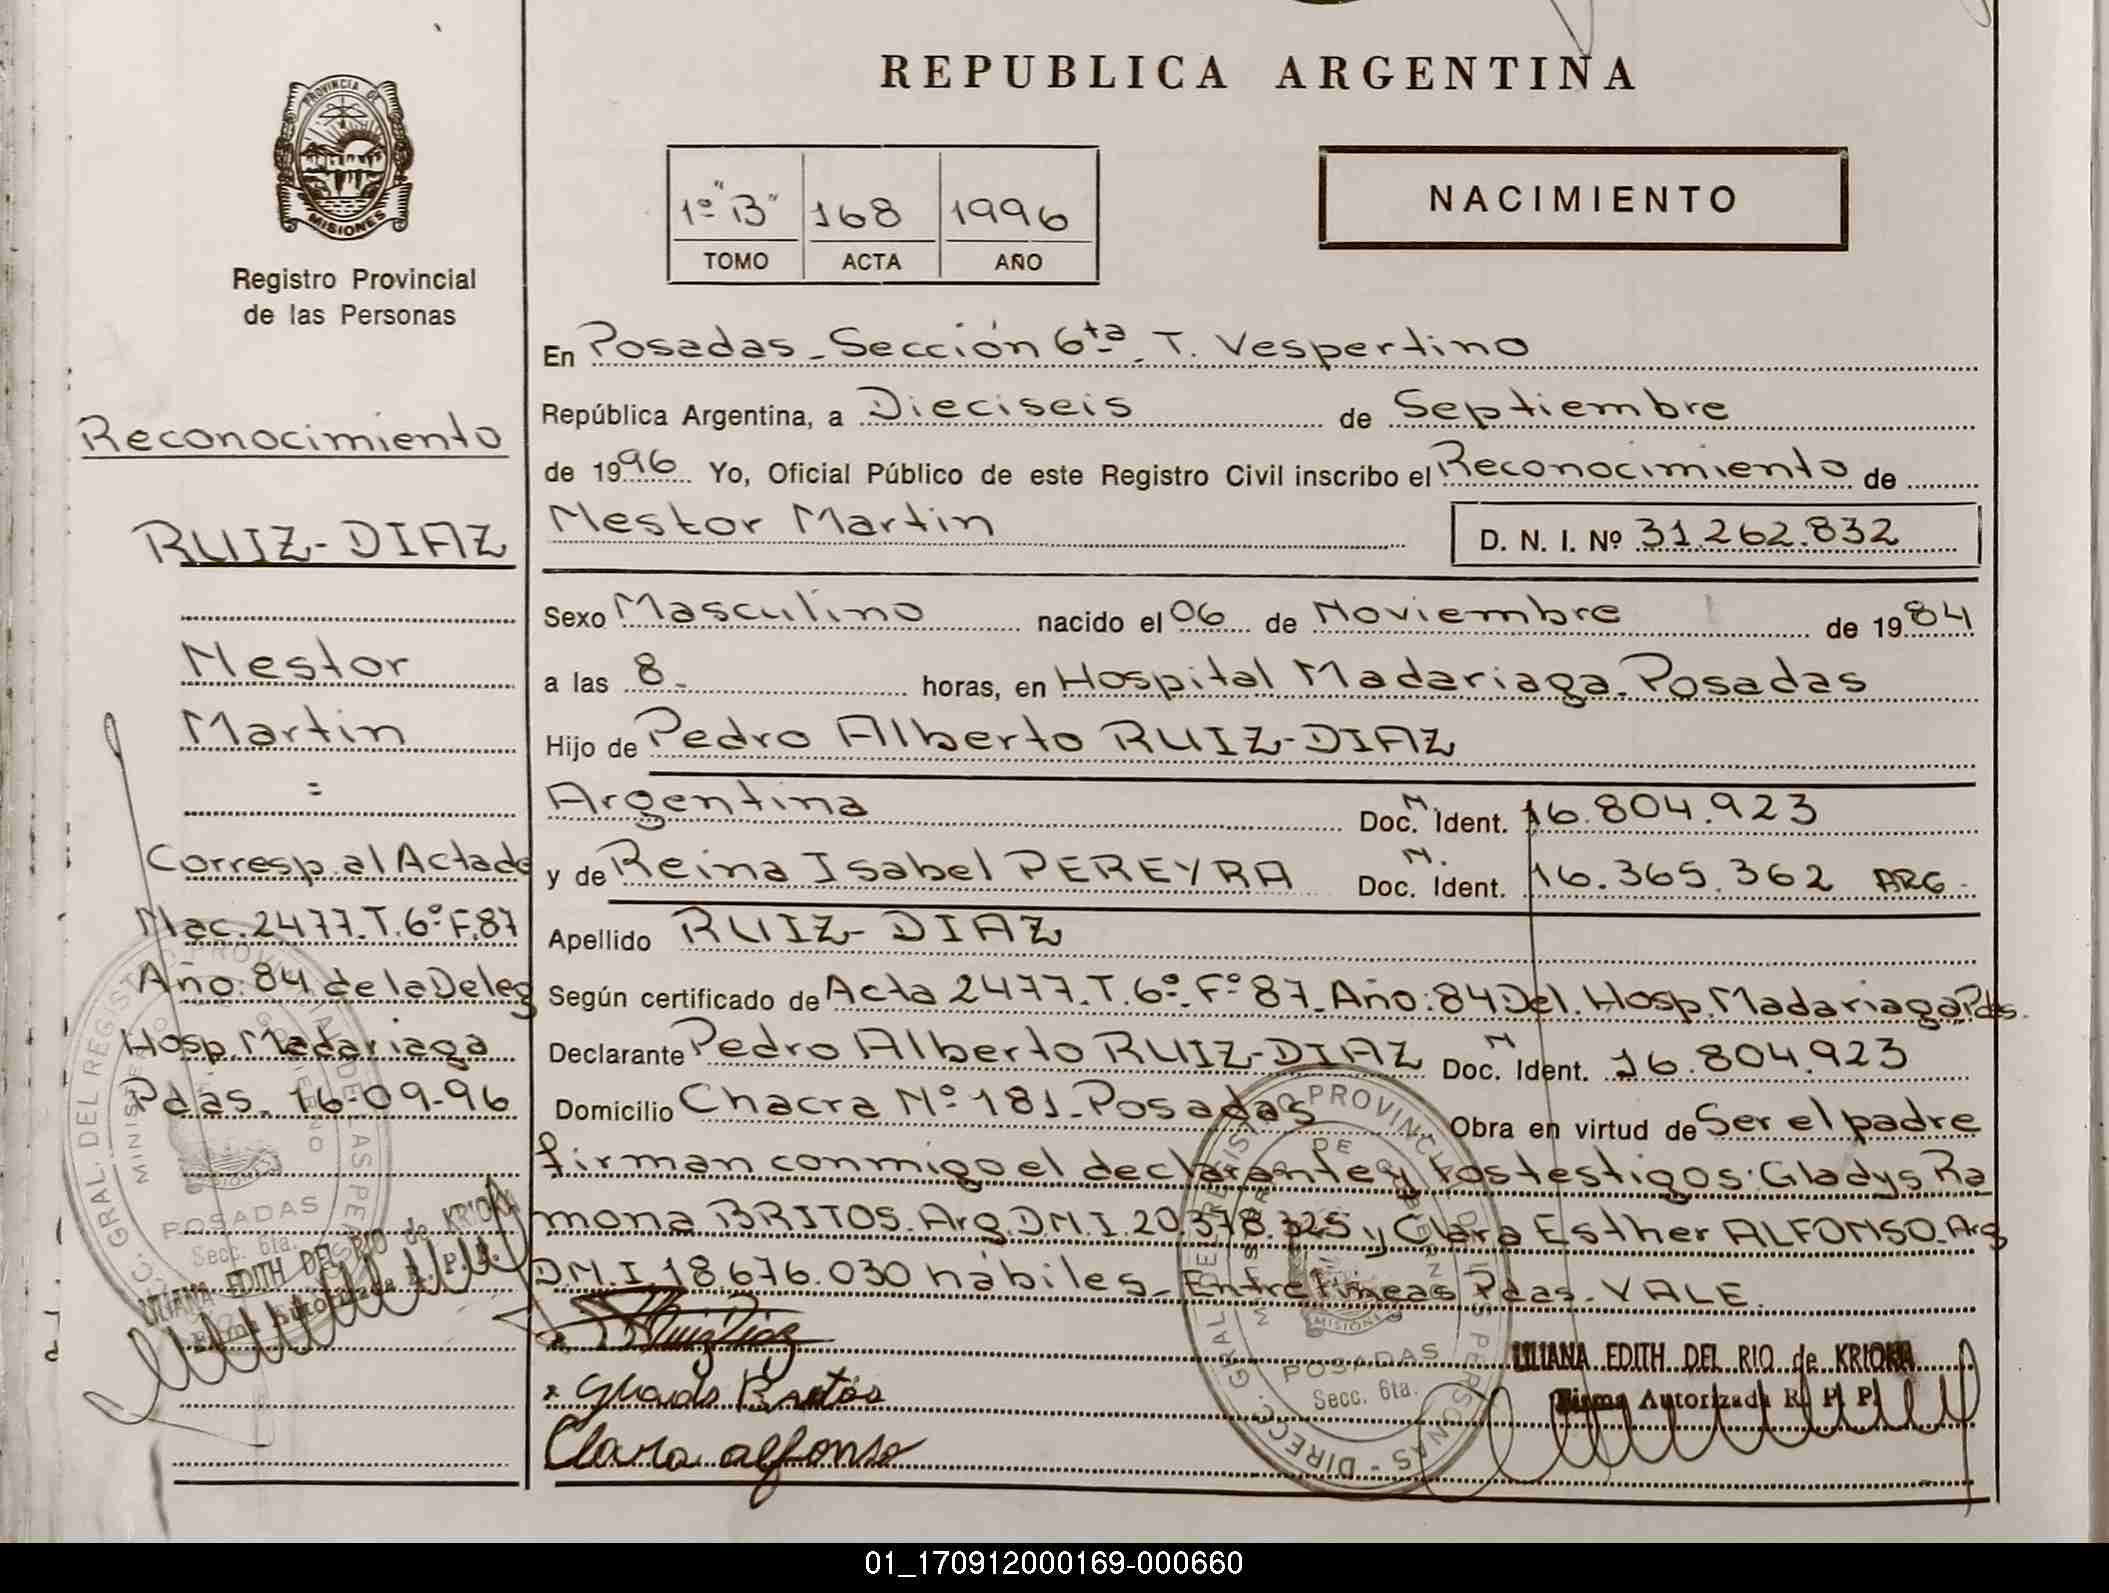 REPUBLICA ARGENTINA
PROVINCIA DE
MISIONES
Registro Provincial
de las Personas
1º "B" 168 1996
TOMO ACTA AÑO
NACIMIENTO
Reconocimiento
RUIZ-DIAZ
Nestor
Martin
=
Corresp. al Acta de
Nac. 2477. T. 6º F. 87
Año: 84 de la Deleg
Hosp. Madariaga
Pdas. 16-09-96
LILIANA EDITH DEL RIO de KRIOKA
Firma Autorizada R. P. P.
En Posadas - Sección 6ta. T. Vespertino
República Argentina, a Dieciseis de Septiembre
de 1996 Yo, Oficial Público de este Registro Civil inscribo el Reconocimiento de
Nestor Martin D. N. I. Nº 31.262.832
Sexo Masculino nacido el 06 de Noviembre de 1984
a las 8.- horas, en Hospital Madariaga. Posadas
Hijo de Pedro Alberto RUIZ-DIAZ
Argentina Doc. N. Ident. 16.804.923
y de Reina Isabel PEREYRA Doc. N. Ident. 16.365.362 ARG.
Apellido RUIZ-DIAZ
Según certificado de Acta 2477. T. 6º. Fº 87. Año: 84 Del. Hosp. Madariaga Pdas.
Declarante Pedro Alberto RUIZ-DIAZ Doc. N Ident. 16.804.923
Domicilio Chacra Nº 181 - Posadas Obra en virtud de Ser el padre
firman conmigo el declarante y los testigos: Gladys Ra
mona BRITOS. Arg. D.N.I. 20.378.325 y Clara Esther ALFONSO. Arg
D.N.I. 18.676.030 hábiles - Entrelíneas Pdas. VALE.
Ruiz Diaz
Britos
Clara alfonso
LILIANA EDITH DEL RIO de KRIOKA
Firma Autorizada R. P. P.
DIREC. GRAL. DEL REGISTRO PROVINCIAL DE LAS PERSONAS
POSADAS
Secc. 6ta.
MISIONES
DIREC. GRAL. DE REGISTRO PROVINCIAL DE LAS PERSONAS
POSADAS
Secc. 6ta.
01_170912000169-000660